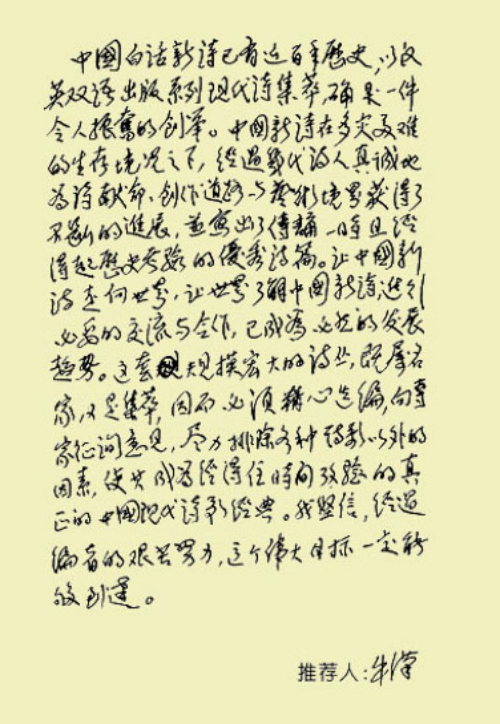 中國白话新诗已有近百年歷史，以汉
英双语出版系列现代詩集萃确是一件
令人振奮的创举。中國新詩在多灾多难
的生存境况之下，经過幾代詩人真诚地
為詩献命，创作道路与藝術境界获得了
不断的進展，並寫出了傳誦一時且经
得起歷史考驗的優秀詩篇。让中國新
詩走向世界，让世界了解中國新詩，進行
必要的交流与合作，已成為必然的发展
趋势。这套规模宏大的詩丛，既屬名
家，又是集萃，因而必須精心选编，向專
家征询意見，尽力排除各种詩歌以外的
因素，使其成為经得住時间攷驗的真
正的中國现代詩歌经典。我坚信，经過
编者的艰苦努力，这个伟大目标一定能
够到達。
推荐人：牛漢